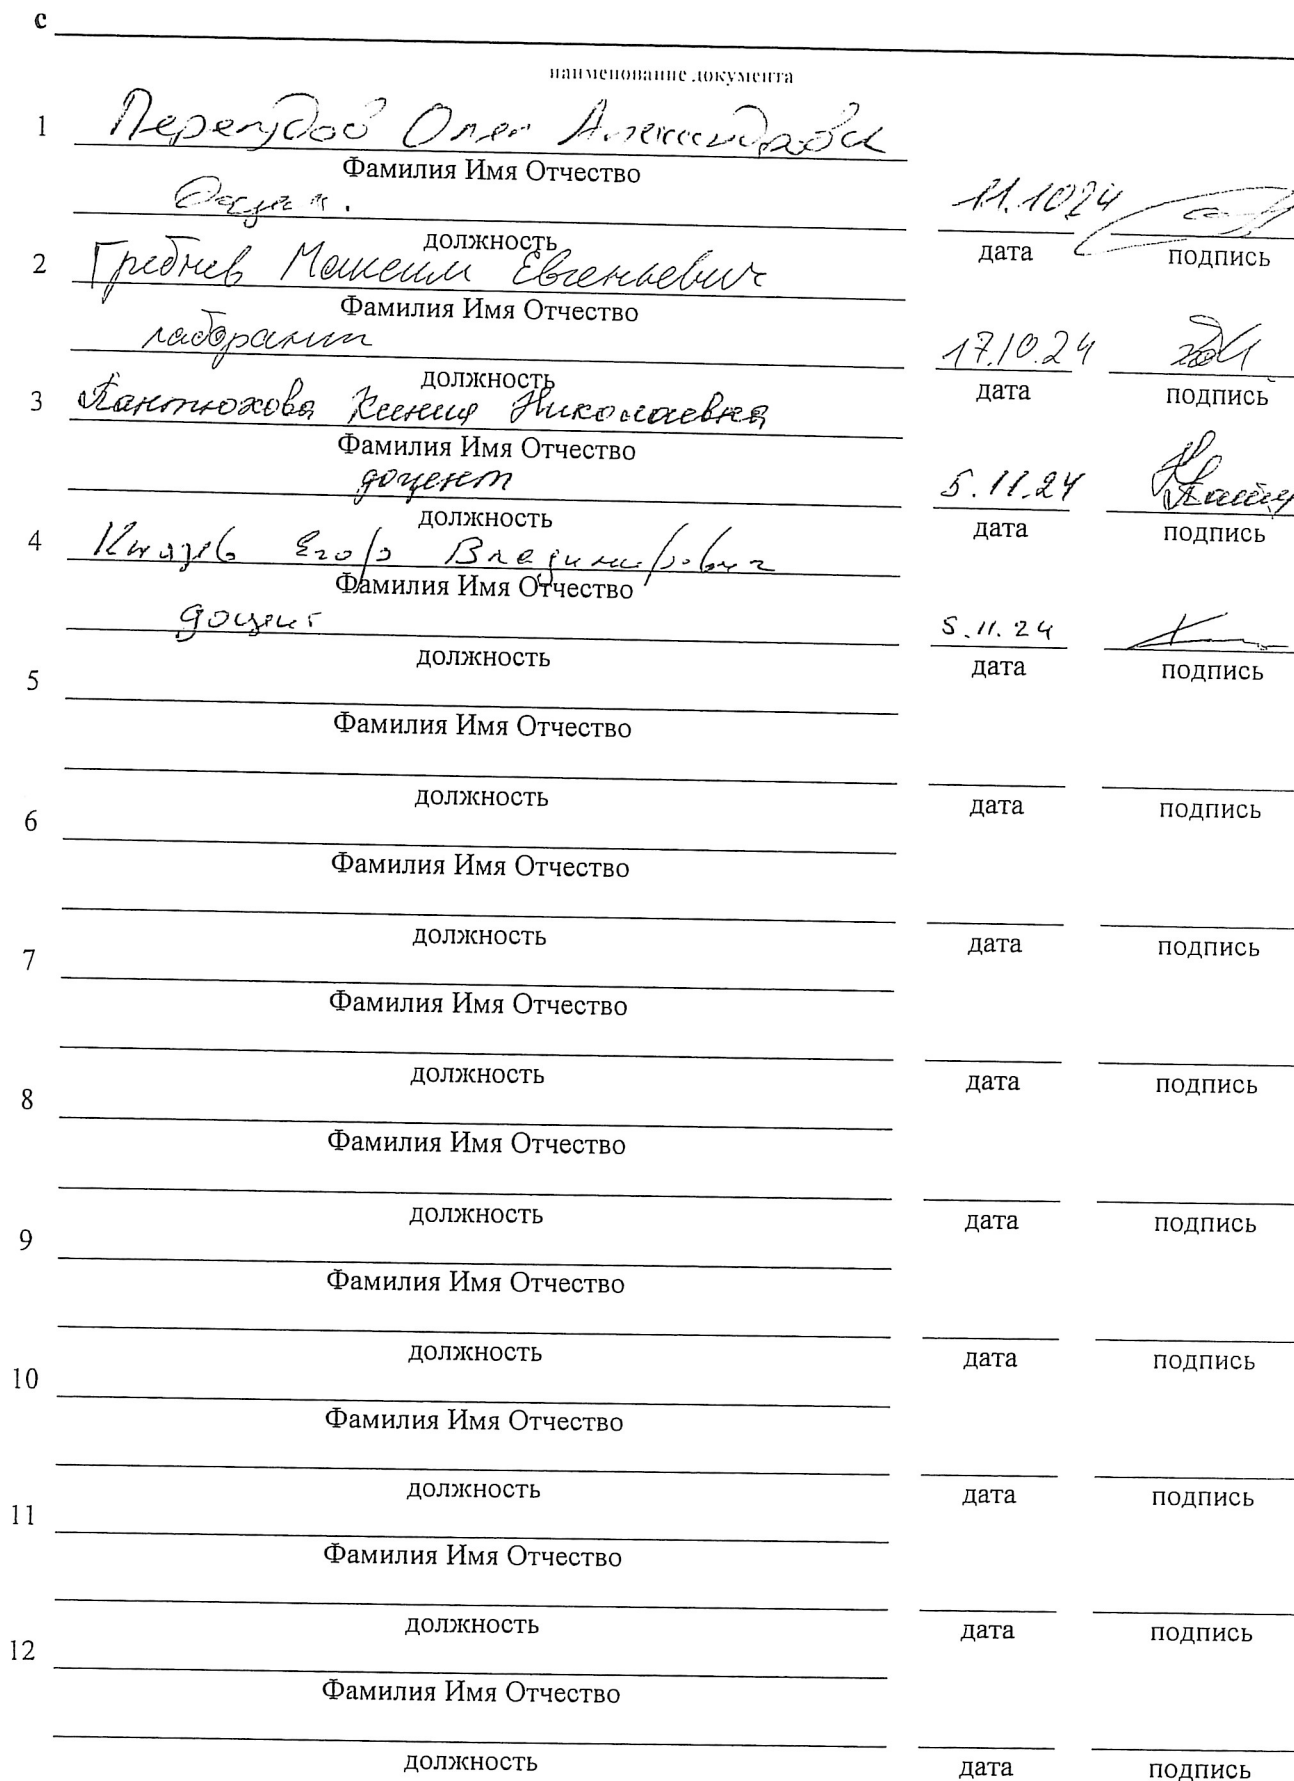 с
наименование документа
1 Перегудов Олег Александрович
Фамилия Имя Отчество
доцент 11.10.24
должность дата подпись
2 Гребнев Максим Евгеньевич
Фамилия Имя Отчество
лаборант 17.10.24
должность дата подпись
3 Пантюхова Ксения Николаевна
Фамилия Имя Отчество
доцент 5.11.24
должность дата подпись
4 Князев Егор Владимирович
Фамилия Имя Отчество
доцент 5.11.24
должность дата подпись
5
Фамилия Имя Отчество
должность дата подпись
6
Фамилия Имя Отчество
должность дата подпись
7
Фамилия Имя Отчество
должность дата подпись
8
Фамилия Имя Отчество
должность дата подпись
9
Фамилия Имя Отчество
должность дата подпись
10
Фамилия Имя Отчество
должность дата подпись
11
Фамилия Имя Отчество
должность дата подпись
12
Фамилия Имя Отчество
должность дата подпись